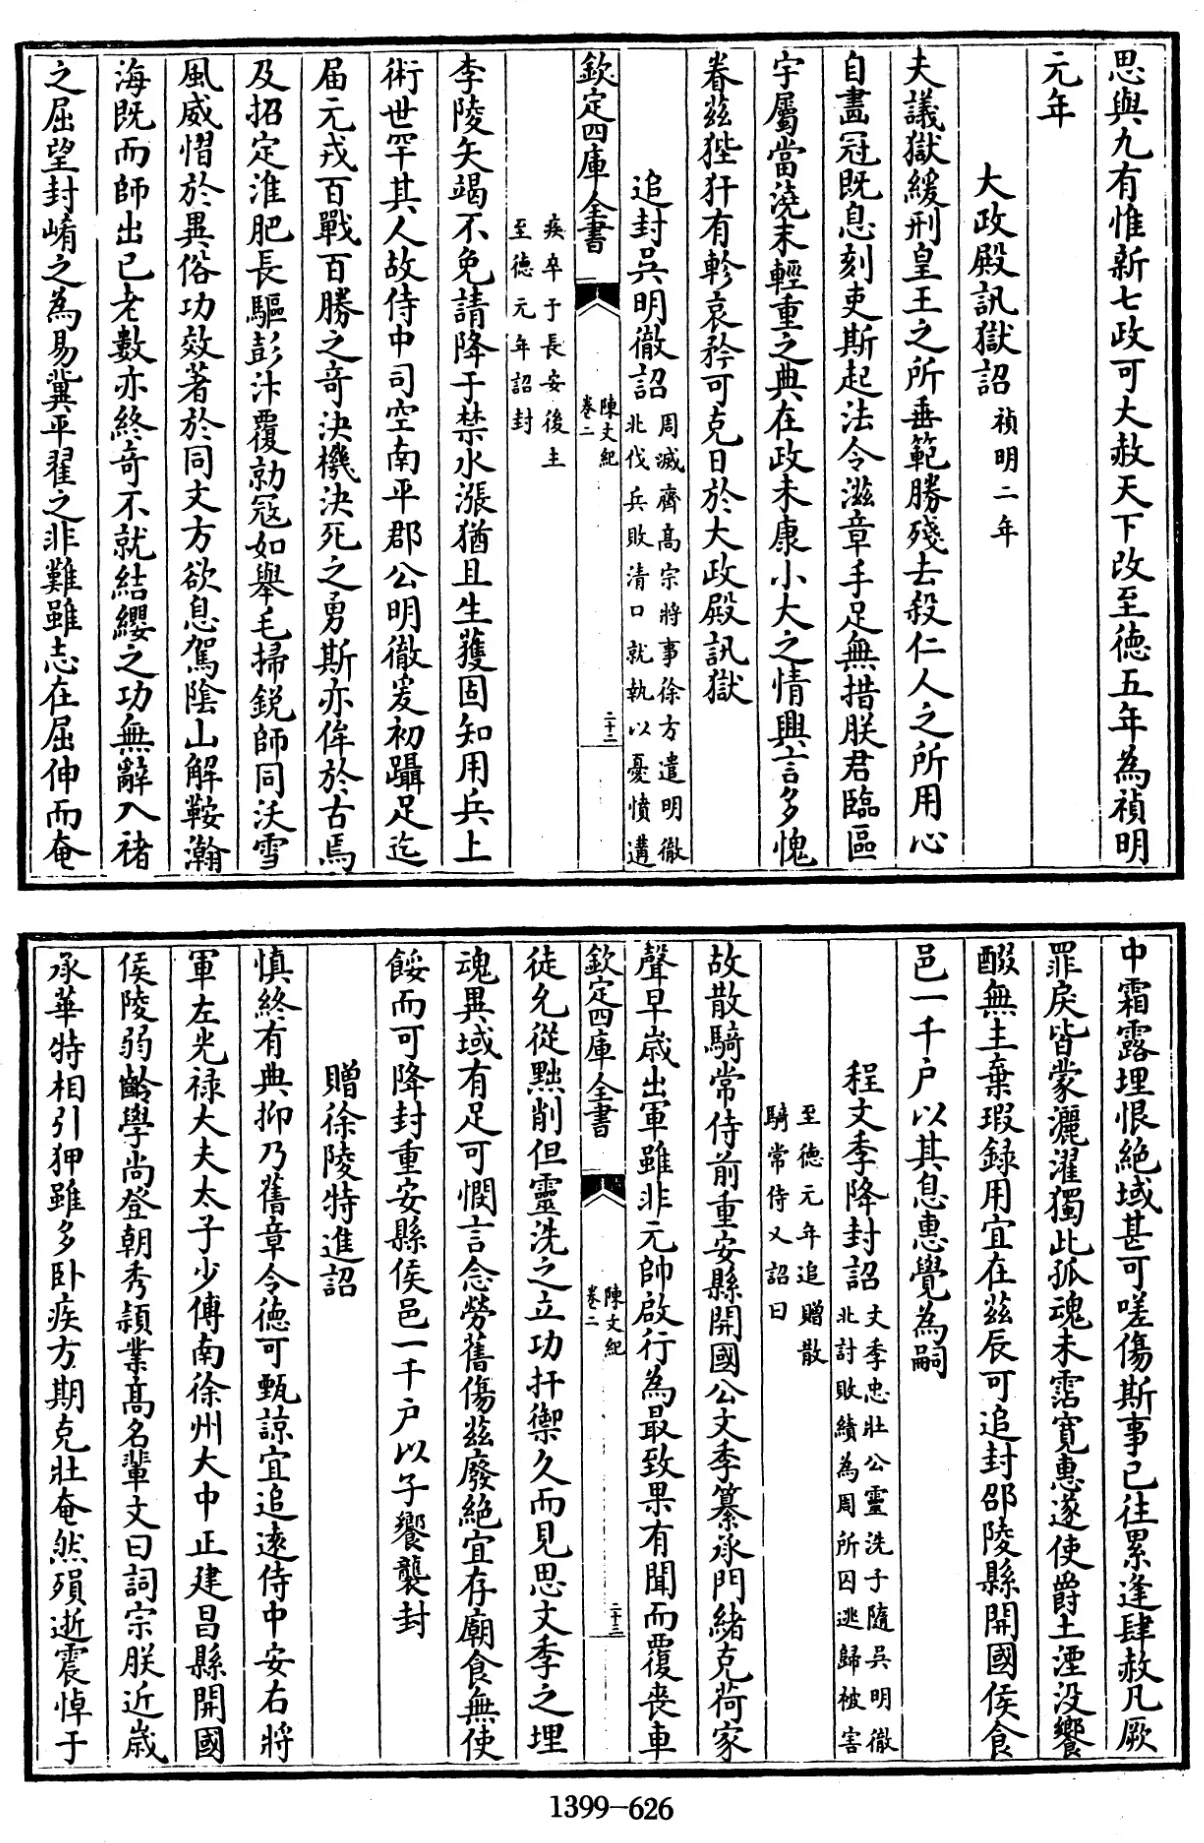 思與九有惟新七政可大赦天下改至德五年為禎明
元年
大政殿訊獄詔禎明二年
夫議獄緩刑皇王之所垂範勝殘去殺仁人之所用心
自畫冠既息刻吏斯起法令滋章手足無措朕君臨區
宇屬當澆末輕重之典在政未康小大之情興言多愧
眷茲狴犴有軫哀矜可克日於大政殿訊獄
追封吳明徹詔周滅齊高宗將事徐方遣明徹
北伐兵敗清口就執以憂憤遘
欽定四庫全書
陳文紀
卷二
二十二
疾卒于長安後主
至德元年詔封
李陵矢竭不免請降于禁水漲猶且生獲固知用兵上
術世罕其人故侍中司空南平郡公明徹爰初躡足迄
届元戎百戰百勝之奇決機決死之勇斯亦侔於古焉
及招定淮肥長驅彭汴覆勍寇如舉毛掃鋭師同沃雪
風威慴於異俗功效著於同文方欲息駕陰山解鞍瀚
海既而師出已老數亦終奇不就結纓之功無辭入褚
之屈望封崤之為易冀平翟之非難雖志在屈伸而奄
中霜露埋恨絶域甚可嗟傷斯事已往累逢肆赦凡厥
罪戾皆蒙灑濯獨此孤魂未霑寛惠遂使爵土湮没饗
醊無主棄瑕録用宜在茲辰可追封邵陵縣開國侯食
邑一千户以其息惠覺為嗣
程文季降封詔文季忠壯公靈洗子隨吳明徹
北討敗績為周所囚逃歸被害
至德元年追贈散
騎常侍又詔曰
故散騎常侍前重安縣開國公文季纂承門緒克荷家
聲早歲出軍雖非元帥啟行為最致果有聞而覆喪車
欽定四庫全書
陳文紀
卷二
二十三
徒允從黜削但靈洗之立功扞禦久而見思文季之埋
魂異域有足可憫言念勞舊傷茲廢絶宜存廟食無使
餒而可降封重安縣侯邑一千户以子饗襲封
贈徐陵特進詔
慎終有典抑乃舊章令德可甄諒宜追遠侍中安右將
軍左光禄大夫太子少傅南徐州大中正建昌縣開國
侯陵弱齡學尚登朝秀頴業高名輩文曰詞宗朕近歲
承華特相引狎雖多卧疾方期克壯奄然殞逝震悼于
1399—626